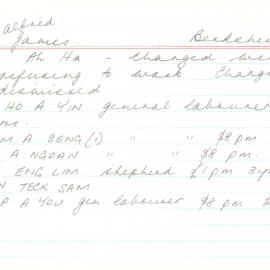 alfred
James. Berkshir
Ah Ha - Changed wi
refusing to work Charge
dismissed
HO A YIN general labourer
ms.
M A SENG (1) " " $8 pm
A NGOAN " " $8 pm.
ENG LIM shepherd £1 pm 3 yr
N TECK SAM.
P A YOU gen labourer. $8 pm 2